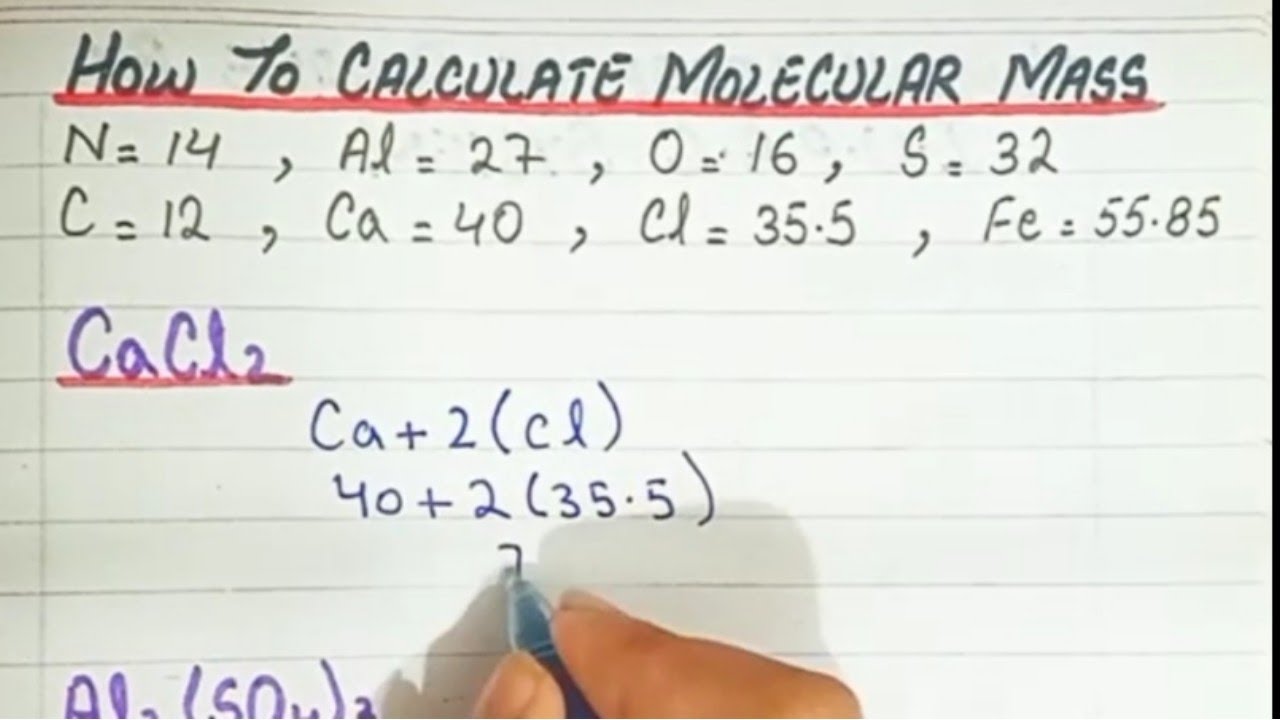 HOW TO CALCULATE MOLECULAR MASS
N = 14 , Al = 27 , O = 16 , S = 32
C = 12 , Ca = 40 , Cl = 35.5 , Fe = 55.85
CaCl2
Ca + 2 (Cl)
40 + 2 (35.5)
7